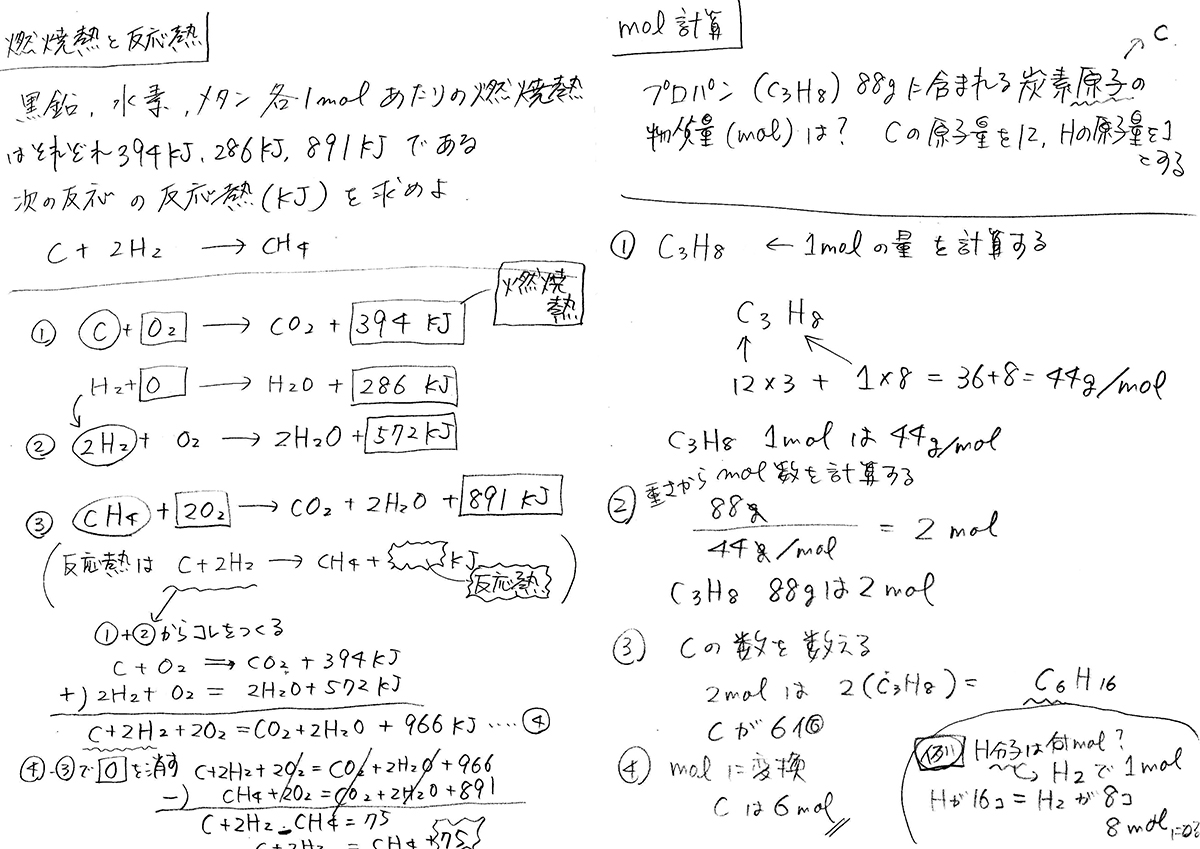 燃焼熱と反応熱
黒鉛、水素、メタン各1molあたりの燃焼熱
はそれぞれ394KJ、286KJ、891KJである
次の反応の反応熱(KJ)を求めよ
C + 2H2 → CH4
燃焼熱
① C + O2 → CO2 + 394 KJ
H2 + O → H2O + 286 KJ
② 2H2 + O2 → 2H2O + 572KJ
③ CH4 + 2O2 → CO2 + 2H2O + 891 KJ
(反応熱は C + 2H2 → CH4 + KJ)
反応熱
①+②からコレをつくる
C + O2 ⇒ CO2 + 394KJ
+) 2H2 + O2 = 2H2O + 572KJ
C+2H2+2O2 = CO2+2H2O + 966KJ ....④
④-③で O を消す C+2H2+2O2 = CO2+2H2O+966
-) CH4+2O2 = CO2+2H2O+891
C+2H2-CH4 = 75
C+2H2 = CH4+75
mol計算
C
プロパン(C3H8) 88gに含まれる炭素原子の
物質量(mol)は? Cの原子量を12, Hの原子量を1
とする
① C3H8 ← 1molの量を計算する
C3 H8
12×3 + 1×8 = 36+8 = 44g/mol
C3H8 1molは44g/mol
② 重さからmol数を計算する
88g
44g/mol
= 2 mol
C3H8 88gは2mol
③ Cの数を数える
2molは 2(C3H8) = C6H16
Cが6個
④ molに変換
Cは6mol
例 H分子は何mol?
H2で1mol
Hが16コ = H2が8コ
8molになる